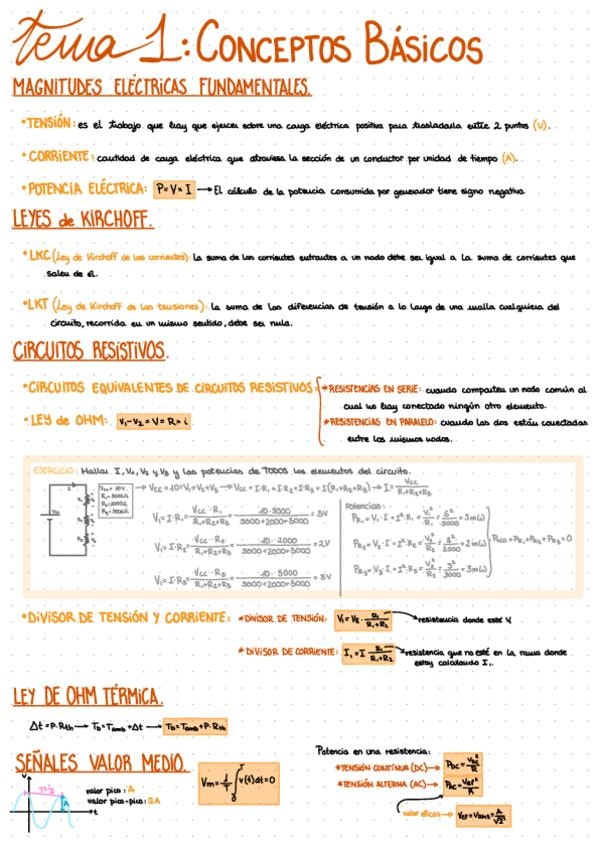 tema 1: CONCEPTOS BÁSICOS
MAGNITUDES ELÉCTRICAS FUNDAMENTALES.
• TENSIÓN: es el trabajo que hay que ejercer sobre una carga eléctrica positiva para trasladarla entre 2 puntos (V).
• CORRIENTE: cantidad de carga eléctrica que atraviesa la sección de un conductor por unidad de tiempo (A).
• POTENCIA ELÉCTRICA: P=V×I → El cálculo de la potencia consumida por generador tiene signo negativo.
LEYES de KIRCHOFF.
• LKC (Ley de Kirchoff de las corrientes): la suma de las corrientes entrantes a un nodo debe ser igual a la suma de corrientes que
salen de él.
• LKT (Ley de Kirchoff de las tensiones): la suma de las diferencias de tensión a lo largo de una malla cualquiera del
circuito, recorrida en un mismo sentido, debe ser nula.
CIRCUITOS RESISTIVOS.
• CIRCUITOS EQUIVALENTES DE CIRCUITOS RESISTIVOS: * RESISTENCIAS EN SERIE: cuando comparten un nodo común al
cual no hay conectado ningún otro elemento.
• LEY de OHM: V₁-V₂ = V = R × i
* RESISTENCIAS EN PARALELO: cuando las dos están conectadas
entre los mismos nodos.
EJERCICIO: Hallar I, V₁, V₂ y V₃ y las potencias de TODOS los elementos del circuito.
→ Vcc = 10 = V₁+V₂+V₃ → Vcc = I·R₁+I·R₂+I·R₃ = I(R₁+R₂+R₃) → I = Vcc / R₁+R₂+R₃
V₁=I·R₁= Vcc·R₁ / R₁+R₂+R₃ =
V₁=I·R₂= Vcc·R₂ / R₁+R₂+R₃ = 10·2000 / 3000+2000+5000 = 2V
Potencias:
• DIVISOR DE TENSIÓN Y CORRIENTE: * DIVISOR DE TENSIÓN: resistencia donde esté V.
* DIVISOR DE CORRIENTE: resistencia que no esté en la rama donde
estoy calculando I₁.
LEY DE OHM TÉRMICA.
Δt = P·Rth → Tb = Tamb + Δt → Tb = Tamb + P·Rth
SEÑALES VALOR MEDIO.
Vm = 1/T ∫ v(t)dt = 0
valor pico: A
valor pico-pico: 2A
Potencia en una resistencia:
* TENSIÓN CONTINUA (DC) → PDC = VDC² / R
* TENSIÓN ALTERNA (AC) → PAC = Vef² / R
valor eficaz → VEF = VRMS = A / √2